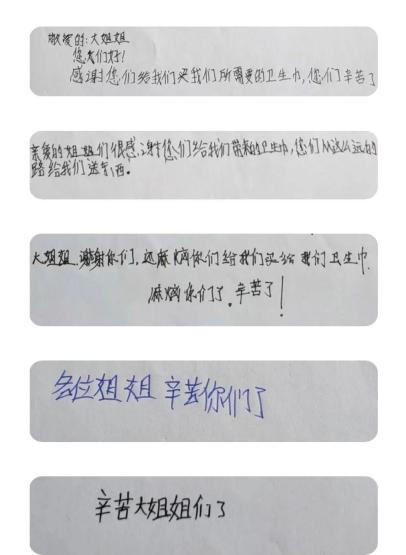 敬爱的:大姐姐
您们好!
感谢您们给我们买我们所需要的卫生巾,您们辛苦了
亲爱的姐姐们很感谢您们给我们带来的卫生巾,您们从这么远的
路给我们送东西。
大姐姐,谢谢你们,还麻烦你们给我们买给我们卫生巾.
麻烦你们了.辛苦了!
各位姐姐辛苦你们了
辛苦大姐姐们了